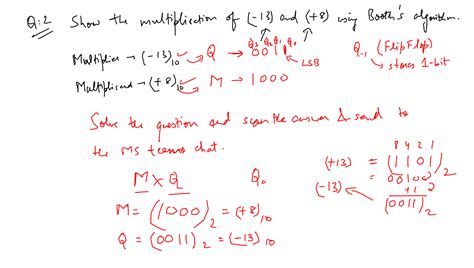 Q:2 Show the multiplication of (-13) and (+8) using Booth's algorithm.
Multiplier → (-13)₁₀ Q → 0011 Q₃ Q₂ Q₁ Q₀ LSB Q₋₁ (Flip Flop) → stores 1-bit
Multiplicand → (+8)₁₀ M → 1000
Solve the question and scan the answer & send to
the MS teams chat.
M × Q Q₀
M = (1000)₂ = (+8)₁₀
Q = (0011)₂ = (-13)₁₀
8 4 2 1
(+13) = (1101)₂
= 00100
(-13) +1
(0011)₂